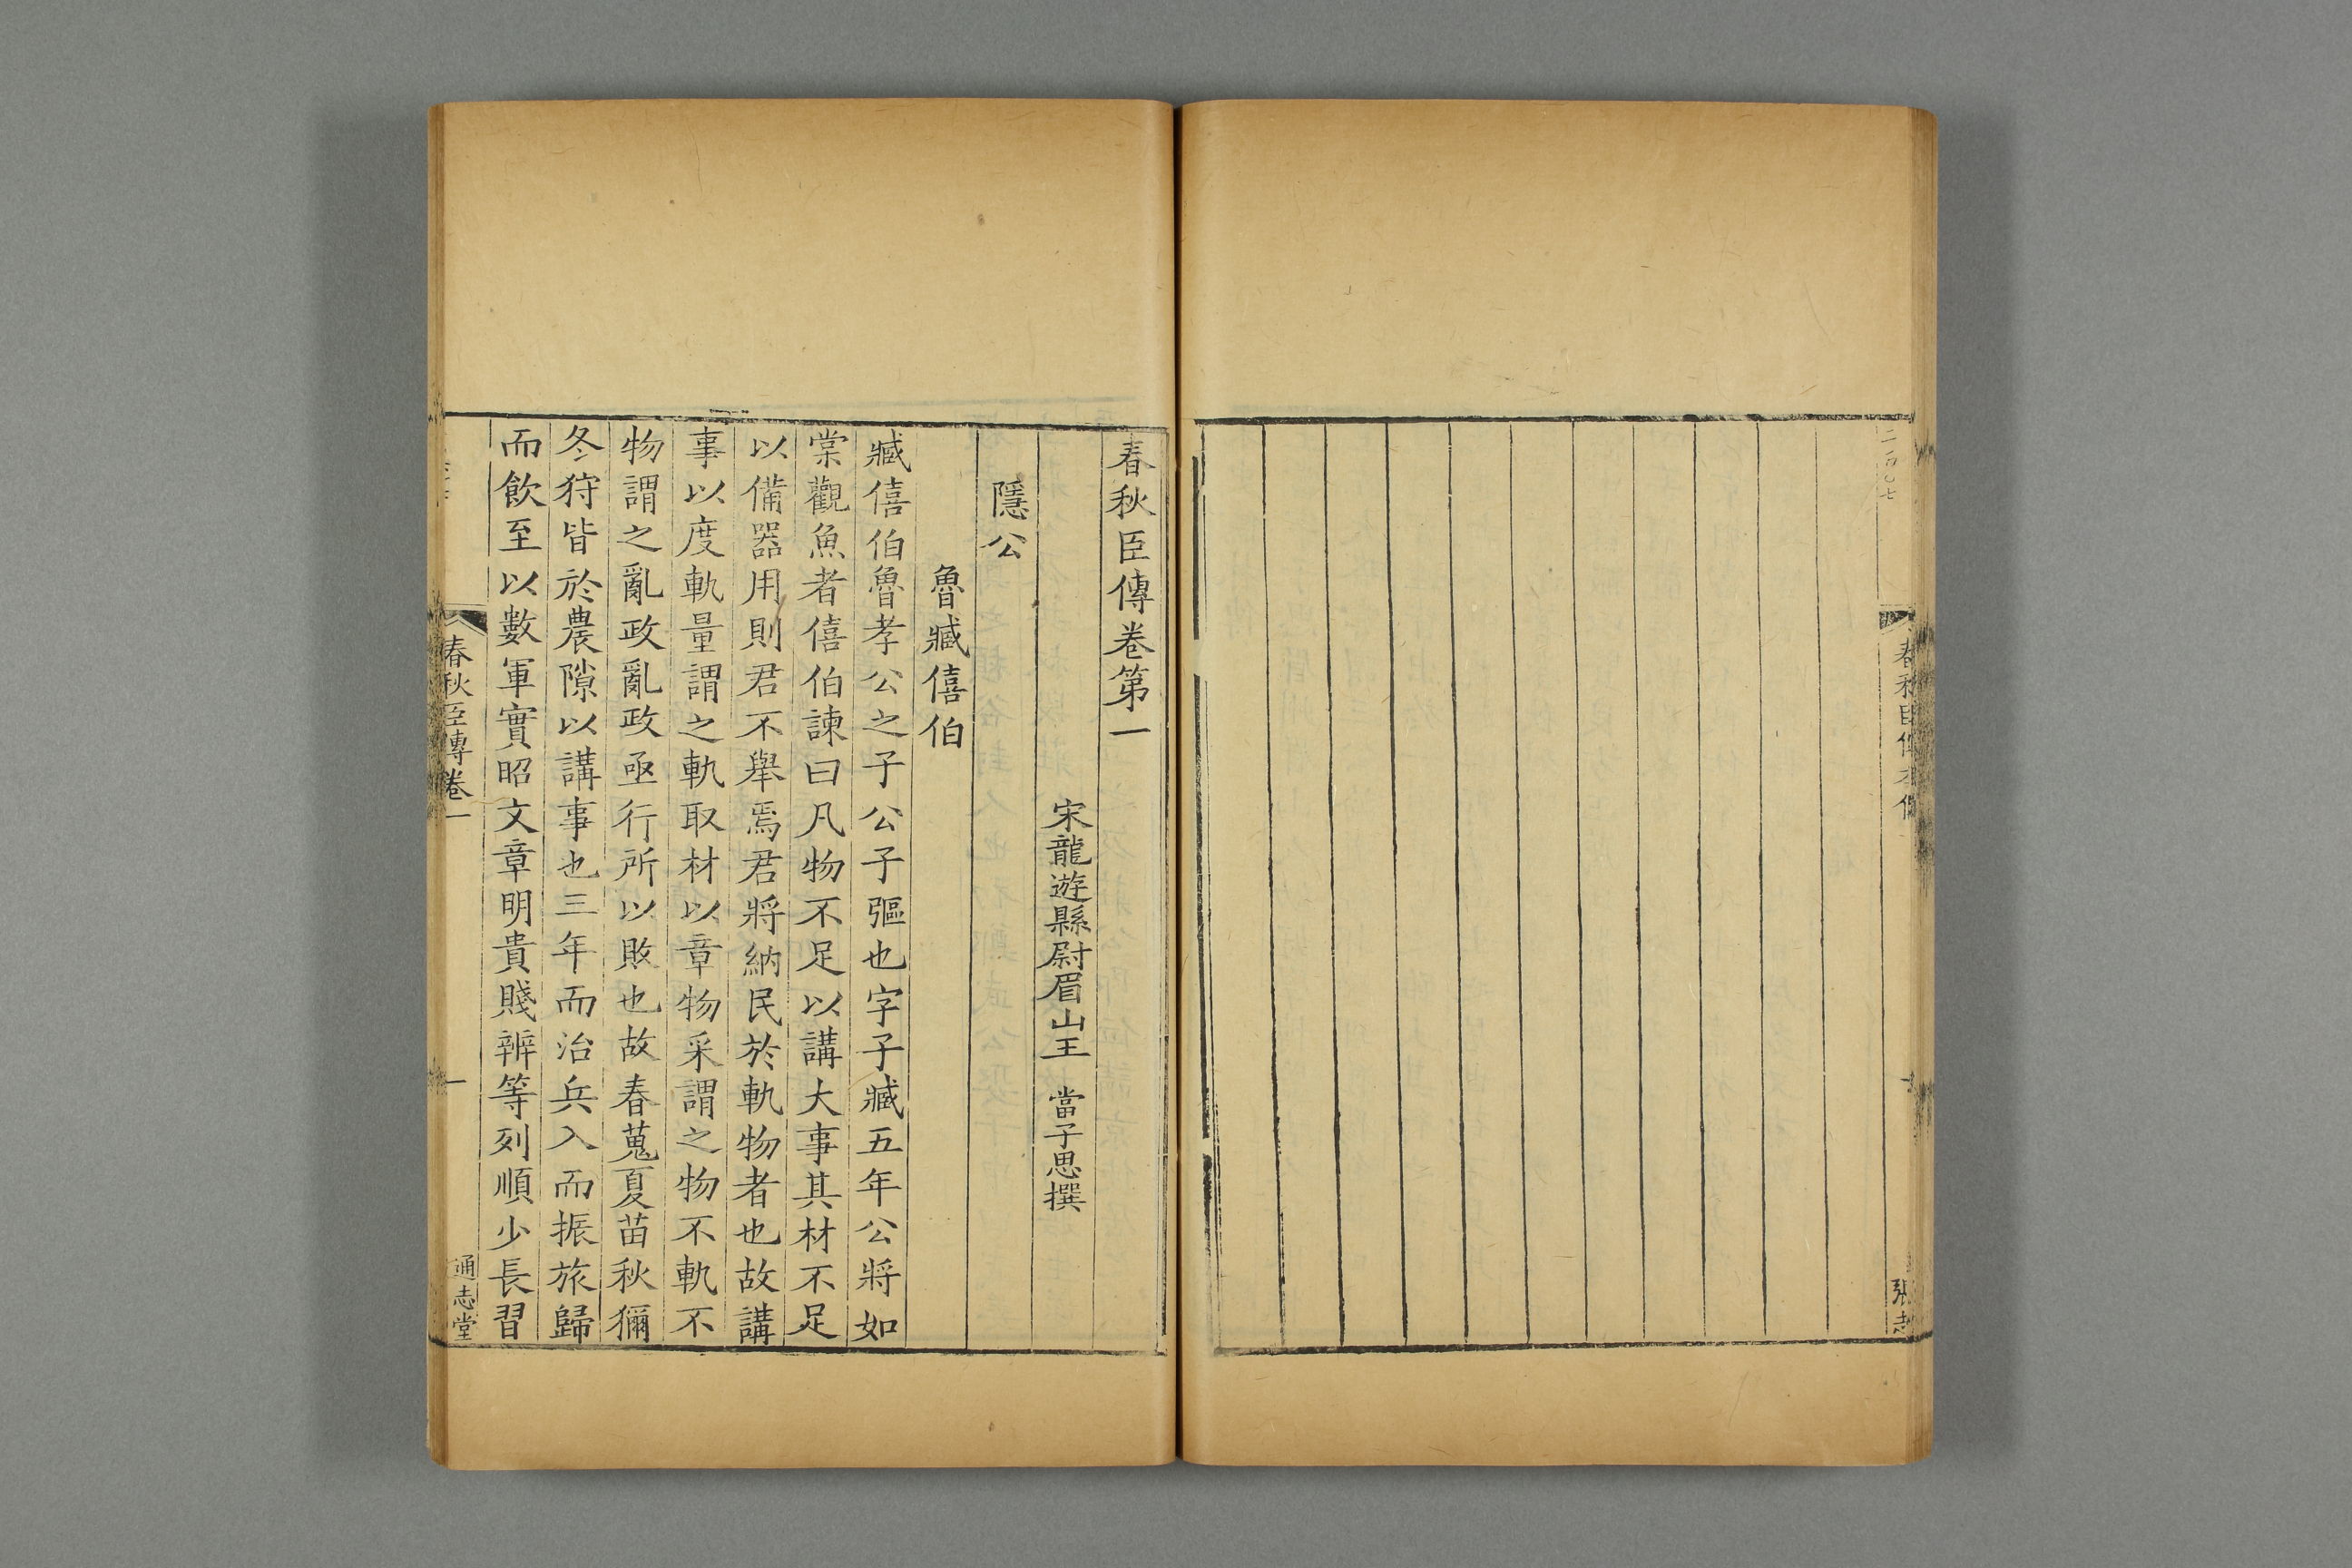 春秋臣傳卷第一
宋龍遊縣尉眉山王　當子思撰
隱公
魯臧僖伯
臧僖伯魯孝公之子公子彄也字子臧五年公將如
棠觀魚者僖伯諫曰凡物不足以講大事其材不足
以備器用則君不舉焉君將納民於軌物者也故講
事以度軌量謂之軌取材以章物采謂之物不軌不
物謂之亂政亂政亟行所以敗也故春蒐夏苗秋獮
冬狩皆於農隙以講事也三年而治兵入而振旅歸
而飲至以數軍實昭文章明貴賤辨等列順少長習
春秋臣傳卷一
一
通志堂